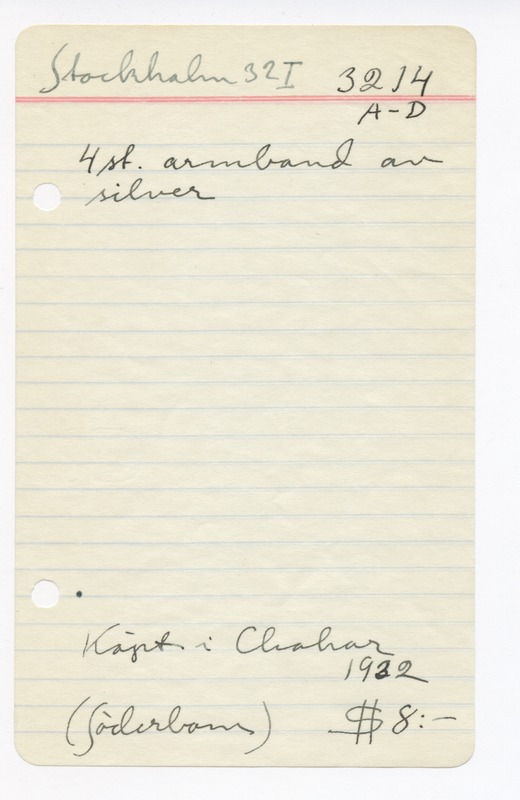 Stockholm 32 I 3214
A-D
4 st. armband av
silver
Köpt i Chahar
1932
(Söderbom) $ 8:-